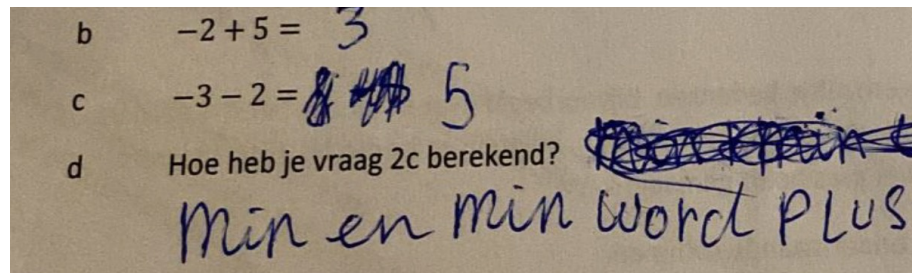 b -2 + 5 = 3
c -3 - 2 = 5
d Hoe heb je vraag 2c berekend?
Min en min word PLUS